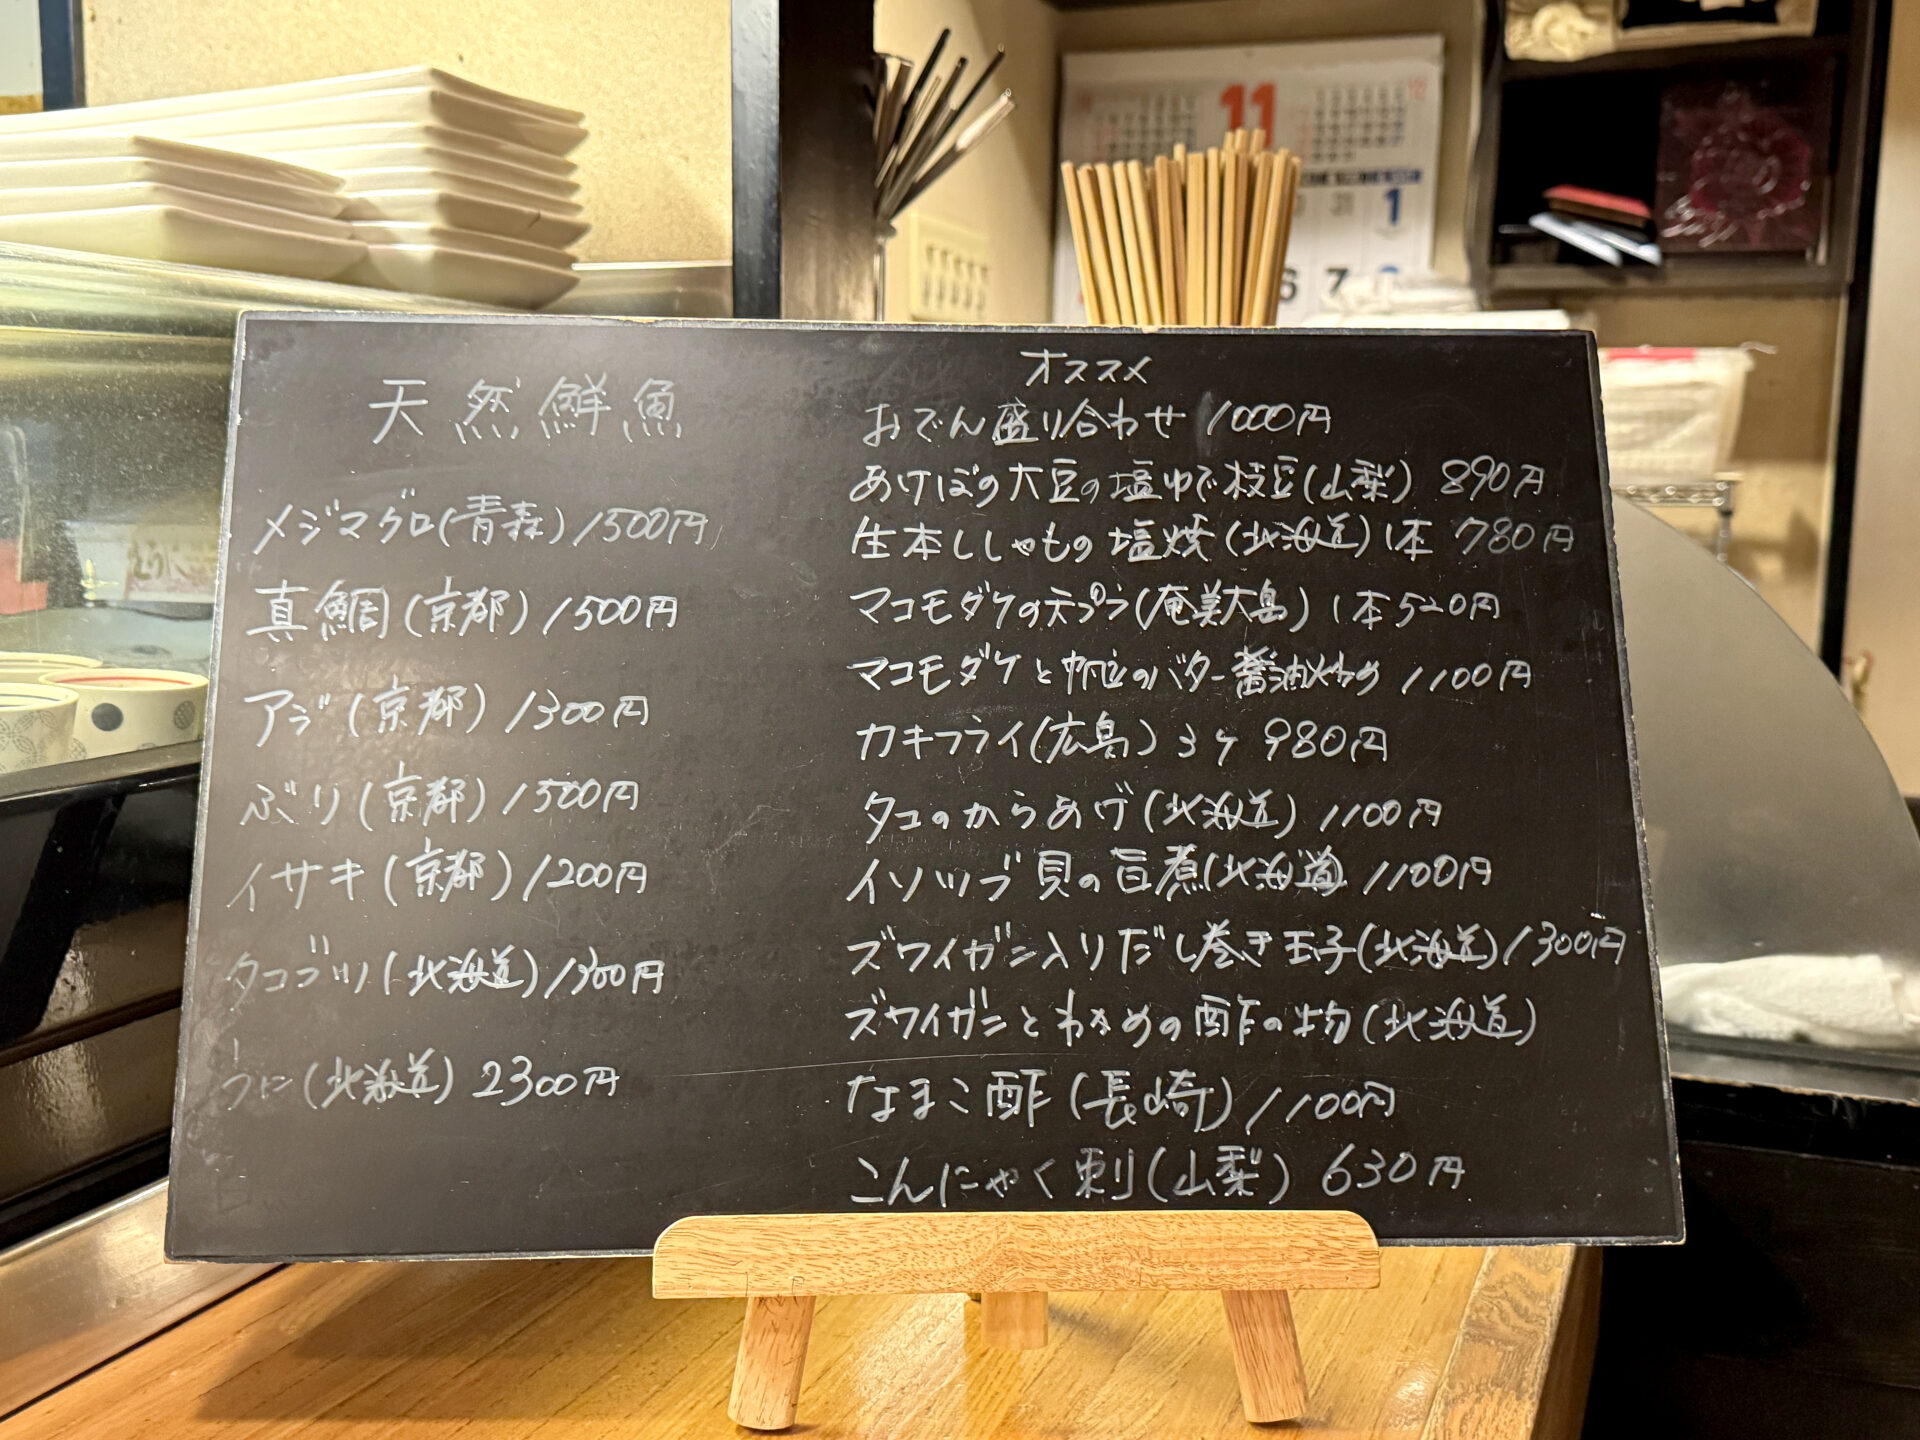 11
12
31
1
6
7
8
天然鮮魚
メジマグロ(青森)1500円
真鯛(京都)1500円
アジ(京都)1300円
ぶり(京都)1500円
イサキ(京都)1200円
タコブツ(北海道)1300円
ウニ(北海道)2300円
オススメ
おでん盛り合わせ 1000円
あけぼの大豆の塩ゆで枝豆(山梨) 890円
生本ししゃもの塩焼(北海道)1本 780円
マコモダケの天プラ(奄美大島) 1本520円
マコモダケと帆立のバター醤油炒め 1100円
カキフライ(広島) 3ケ 980円
タコのからあげ(北海道) 1100円
イソツブ貝の旨煮(北海道) 1100円
ズワイガニ入りだし巻き玉子(北海道)1300円
ズワイガニとわかめの酢の物(北海道)
なまこ酢(長崎) 1100円
こんにゃく刺(山梨) 630円